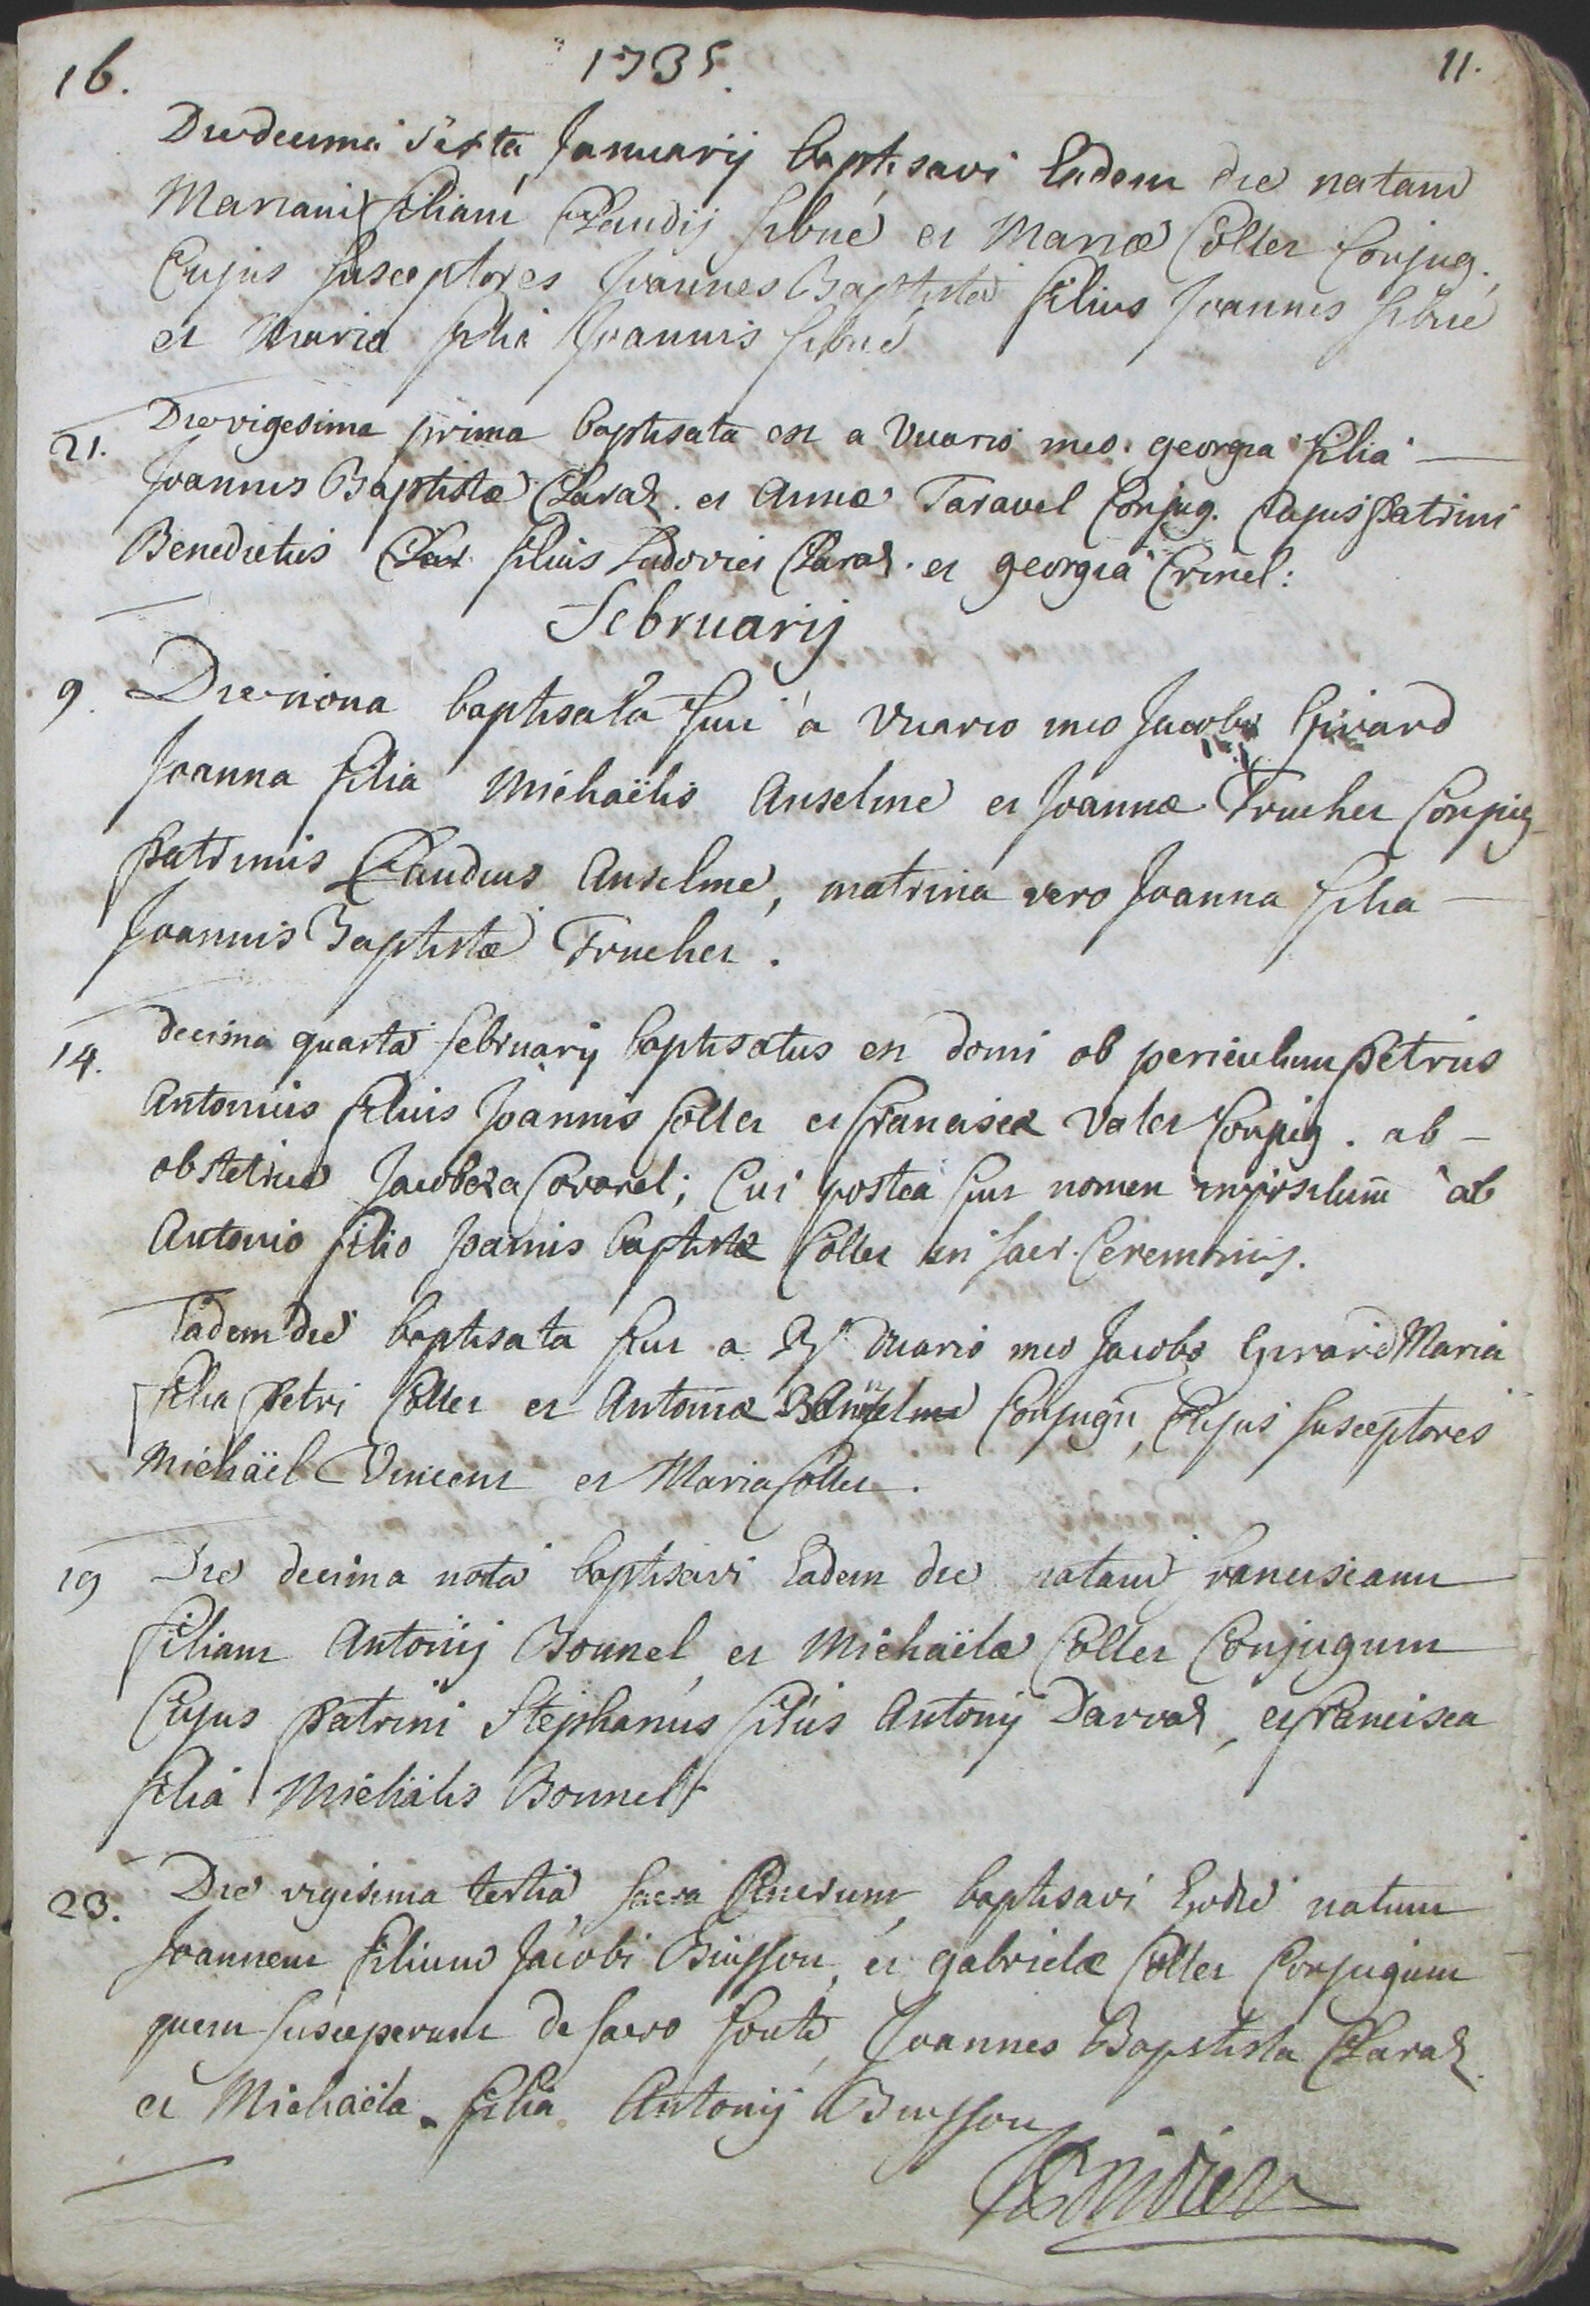 16. 1735. 11.
Die decima sexta Januarij baptisavi Eadem die natam
Mariam filiam Claudij Sibué et Mariæ Collet Conjug.
Cujus susceptores Joannes Baptista filius Joannis Sibué
et Maria filia Joannis Sibué
21. Die vigesima prima baptisata est a Vicario meo. georgia filia —
Joannis Baptistæ Claraz. et Annæ Taravel Conjug. Cujus patrini
Benedictus filius Ludovici Claraz. et georgia Crinel:
Februarij
9. Die nona baptisata fuit a Vicario meo Jacobo Girard
Joanna filia Michaëlis Anselme et Joannæ Truchet Conjug
patrinus Claudius Anselme, matrina vero Joanna filia —
Joannis Baptistæ Truchet.
14. decima quarta februarij baptisatus est domi ob periculum petrus
Antonius filius Joannis Collet et franciscæ Valet Conjug. ab —
obstetrice Jacobæa Covarel; Cui postea fuit nomen impositum ab
Antonio filio Joannis baptistæ Collet in sacr. Ceremoniis.
Eadem die baptisata fuit a Rd Vicario meo Jacobo Girard Maria
filia petri Collet et Antoniæ Anselme Conjugu, Cujus susceptores
Michaël Vincent et Maria Collet.
19 Die decima nona baptisavi Eadem die natam franciscam
filiam Antonij Bonnel et Michaëlæ Collet Conjugum
Cujus patrini Stephanus filius Antonij Darvaz, et francisca
filia Michaëlis Bonnel
23. Die vigesima tertia, sacra Cinerum, baptisavi Eodie natum
Joannem filium Jacobi Buisson, et gabrielæ Collet Conjugum
quem susceperunt de sacro fonte, Joannes Baptista Claraz
et Michaëla filia Antonij Buisson